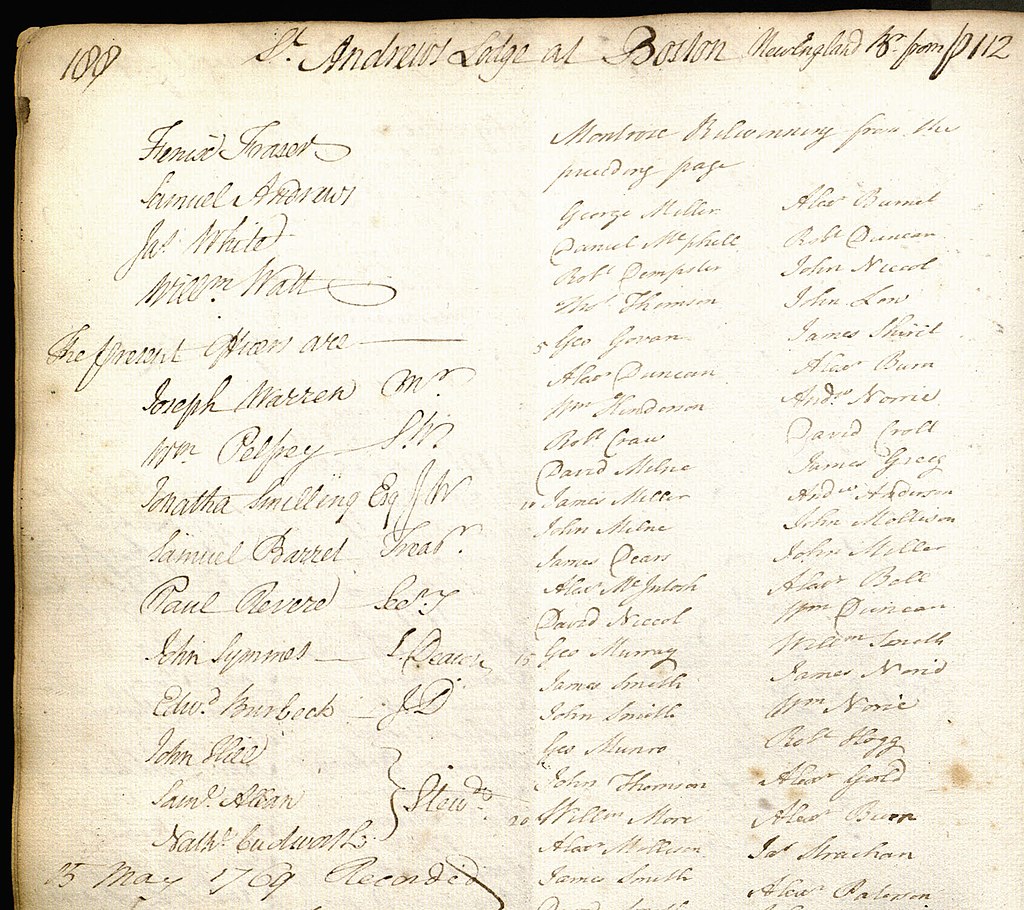 188 St. Andrews Lodge at Boston New England Br from p 112
Fenix Fraser
Samuel Andrews
Jas. White
Willm Watt
The present officers are
Joseph Warren Mr.
Wm Palfrey S.W.
Jonatha Snelling Esq J W
Samuel Barret Treasr.
Paul Revere Secy
John Symmes S. Deacon
Edwd. Burbeck J D
John Hill
Saml. Allan Stewds
Nathl. Cudworth
25 May 1769 Recorded
Montrose Kilwinning from the
preceding page
George Miller
Daniel McPhell
Robt Dempster
Thos Thomson
5 Geo Govan
Alexr Duncan
Wm Henderson
Robt Craw
David Milne
10 James Miller
John Milne
James Dears
Alexr McIntosh
David Niccol
15 Geo Murray
James Smith
John Smith
Geo Munro
John Thomson
20 Willm More
Alexr Mollison
James Smith
David Smith
Alexr Burnet
Robt Duncan
John Niccol
John Low
James Shiret
Alexr Burn
Andw Norrie
David Croll
James Greig
Andw Anderson
John Mollison
John Miller
Alexr Bell
Wm Duncan
Willm Smith
James Norie
Wm Norie
Robt Hogg
Alexr Gold
Alexr Burn
Jas Strachan
Alexr Paterson